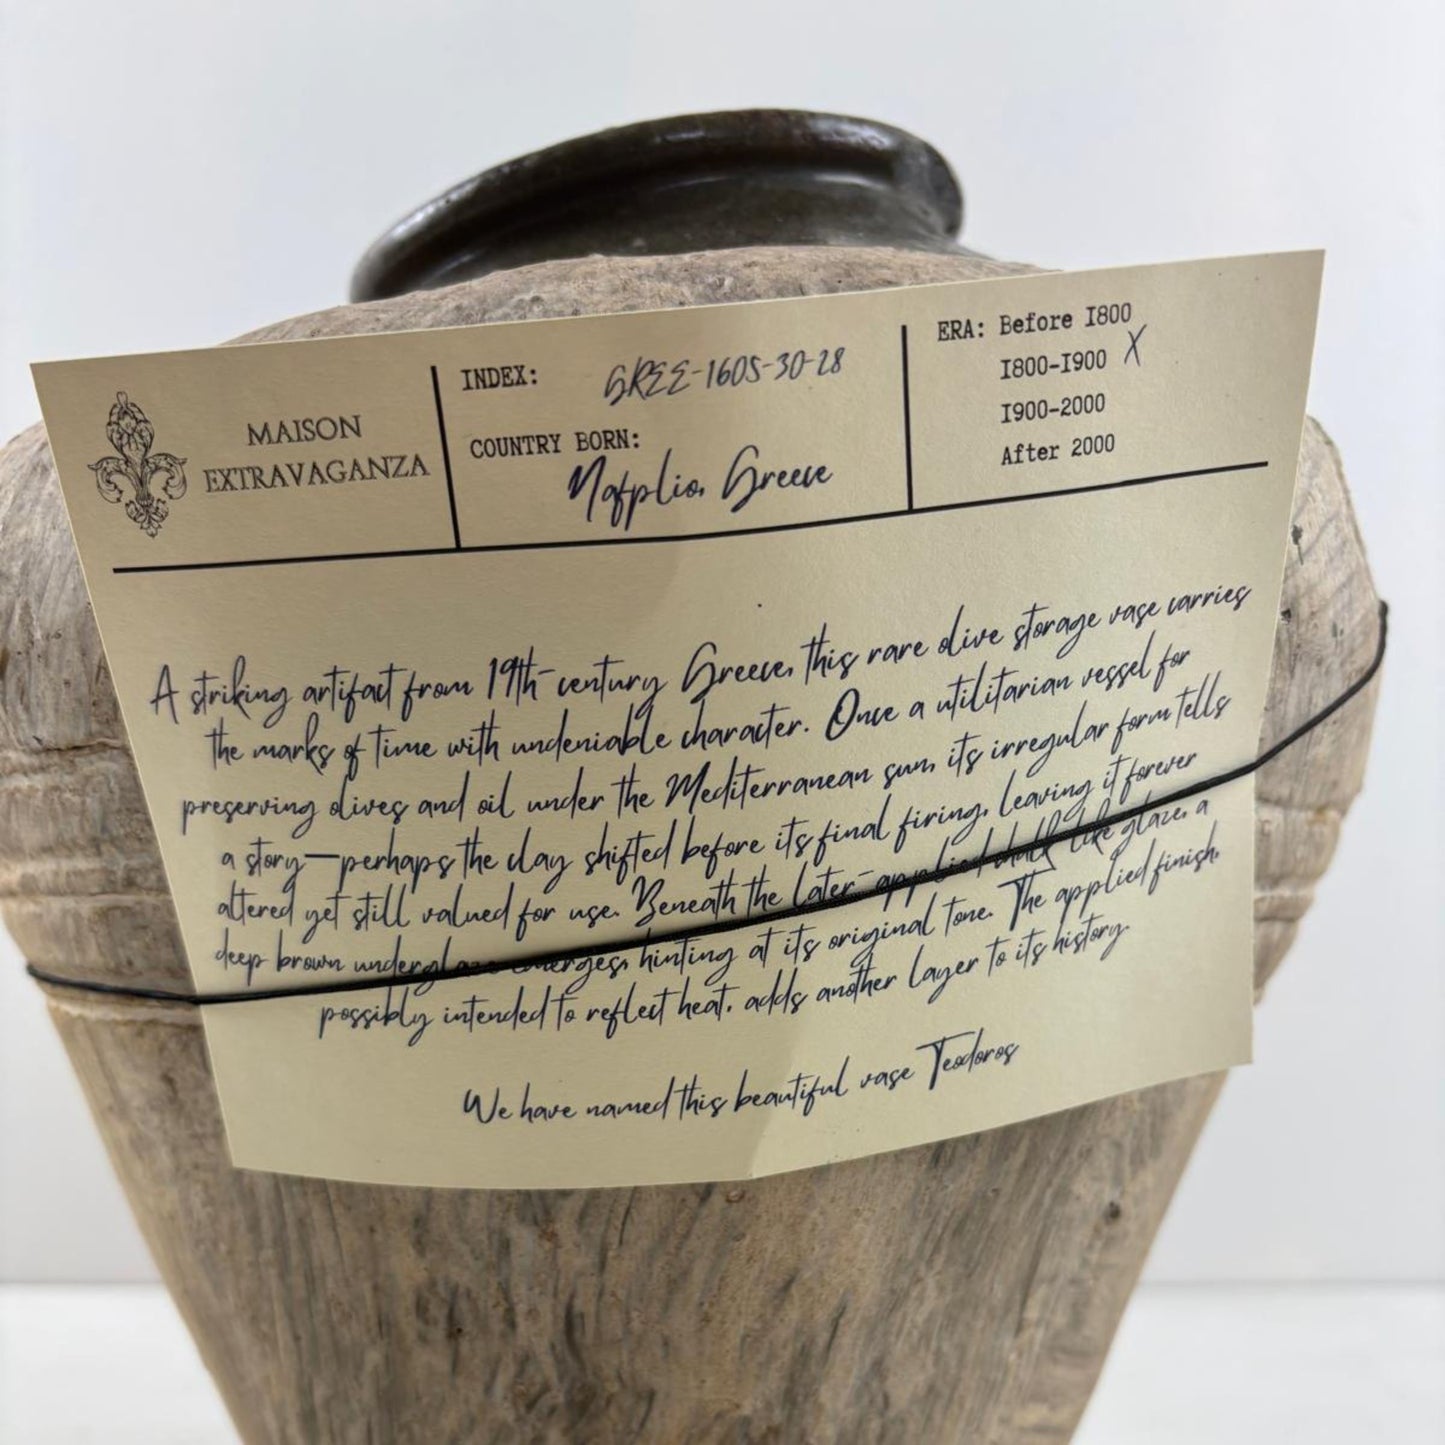 MAISON
EXTRAVAGANZA
INDEX: GREE-1605-30-28
COUNTRY BORN:
Nafplio, Greece
ERA: Before 1800
1800-1900 X
1900-2000
After 2000
A striking artifact from 19th-century Greece, this rare olive storage vase carries
the marks of time with undeniable character. Once a utilitarian vessel for
preserving olives and oil under the Mediterranean sun, its irregular form tells
a story—perhaps the clay shifted before its final firing, leaving it forever
altered yet still valued for use. Beneath the later-applied chalk-like glaze, a
deep brown underglaze emerges, hinting at its original tone. The applied finish,
possibly intended to reflect heat, adds another layer to its history.
We have named this beautiful vase Teodoros